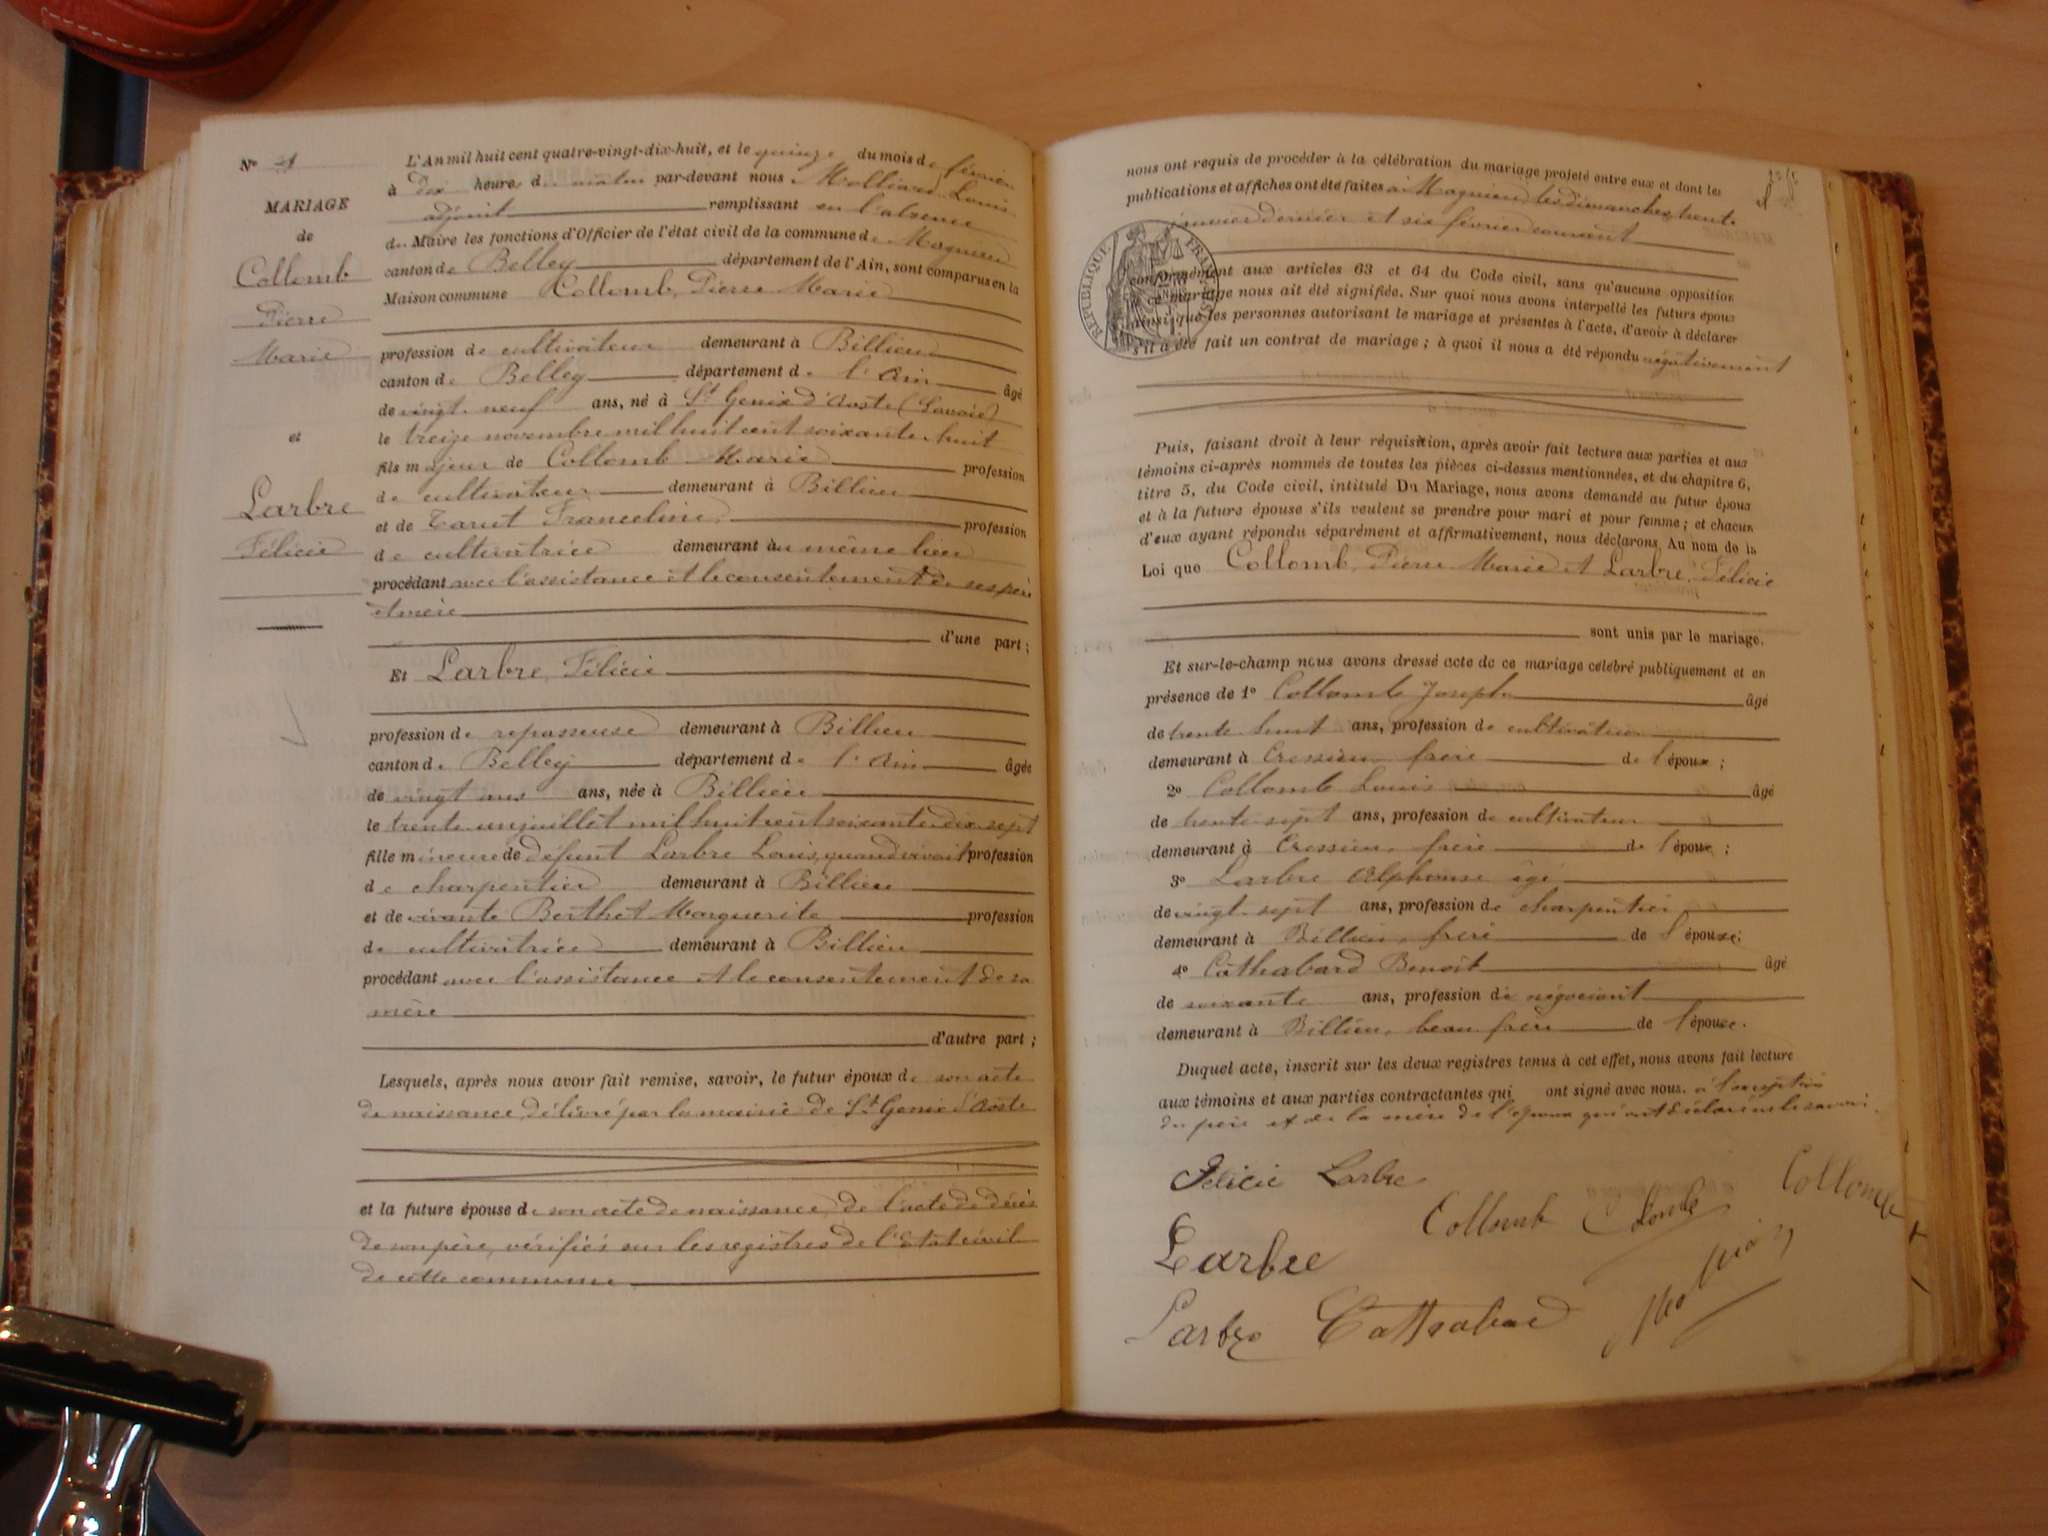 N° 1
MARIAGE
de
Collomb
Pierre
Marie
et
Larbre
Félicie
L'An mil huit cent quatre-vingt-dix-huit, et le quinze du mois de février
à dix heures du matin par-devant nous Molliard Louis
adjoint remplissant en l'absence
du Maire les fonctions d'Officier de l'état civil de la commune de Magnieu
canton de Belley département de l'Ain, sont comparus en la
Maison commune Collomb, Pierre Marie
profession de cultivateur demeurant à Billieu
canton de Belley département de l'Ain âgé
de vingt-neuf ans, né à St Genix d'Aoste (Savoie)
le treize novembre mil huit cent soixante-huit
fils majeur de Collomb Marie profession
de cultivateur demeurant à Billieu
et de Franceline profession
de cultivatrice demeurant au même lieu
procédant avec l'assistance et le consentement de ses père
et mère
d'une part ;
Et Larbre, Félicie
profession de repasseuse demeurant à Billieu
canton de Belley département de l'Ain âgée
de vingt ans ans, née à Billieu
le trente-un juillet mil huit cent soixante-dix-sept
fille mineure de défunt Larbre Louis, quand vivait profession
de charpentier demeurant à Billieu
et de vivante Berthet Marguerite profession
de cultivatrice demeurant à Billieu
procédant avec l'assistance et le consentement de sa
mère
d'autre part ;
Lesquels, après nous avoir fait remise, savoir, le futur époux de son acte
de naissance, délivré par la mairie de St Genix d'Aoste
et la future épouse de son acte de naissance, de l'acte de décès
de son père, vérifiés sur les registres de l'Etat civil
de cette commune
nous ont requis de procéder à la célébration du mariage projeté entre eux et dont les
publications et affiches ont été faites à Magnieu les dimanches trente
janvier dernier et six février courant
REPUBLIQUE FRANÇAISE
conformément aux articles 63 et 64 du Code civil, sans qu'aucune opposition
à ce mariage nous ait été signifiée. Sur quoi nous avons interpellé les futurs époux
ainsi que les personnes autorisant le mariage et présentes à l'acte, d'avoir à déclarer
s'il a été fait un contrat de mariage ; à quoi il nous a été répondu négativement
Puis, faisant droit à leur réquisition, après avoir fait lecture aux parties et aux
témoins ci-après nommés de toutes les pièces ci-dessus mentionnées, et du chapitre 6,
titre 5, du Code civil, intitulé Du Mariage, nous avons demandé au futur époux
et à la future épouse s'ils veulent se prendre pour mari et pour femme ; et chacun
d'eux ayant répondu séparément et affirmativement, nous déclarons Au nom de la
Loi que Collomb, Pierre Marie et Larbre, Félicie
sont unis par le mariage.
Et sur-le-champ nous avons dressé acte de ce mariage célébré publiquement et en
présence de 1° Collomb Joseph âgé
de trente-huit ans, profession de cultivateur
demeurant à Cressieu, frère de l'époux ;
2° Collomb Louis âgé
de trente-sept ans, profession de cultivateur
demeurant à Cressieu, frère de l'époux ;
3° Larbre Alphonse âgé
de vingt-sept ans, profession de charpentier
demeurant à Billieu, frère de l'épouse;
4° Cathabard Benoît âgé
de soixante ans, profession de négociant
demeurant à Billieu, beau frère de l'épouse.
Duquel acte, inscrit sur les deux registres tenus à cet effet, nous avons fait lecture
aux témoins et aux parties contractantes qui ont signé avec nous. à l'exception
du père et de la mère de l'époux qui ont déclaré ne le savoir.
Félicie Larbre
Collomb Collomb
Larbre
Larbre Cathabard